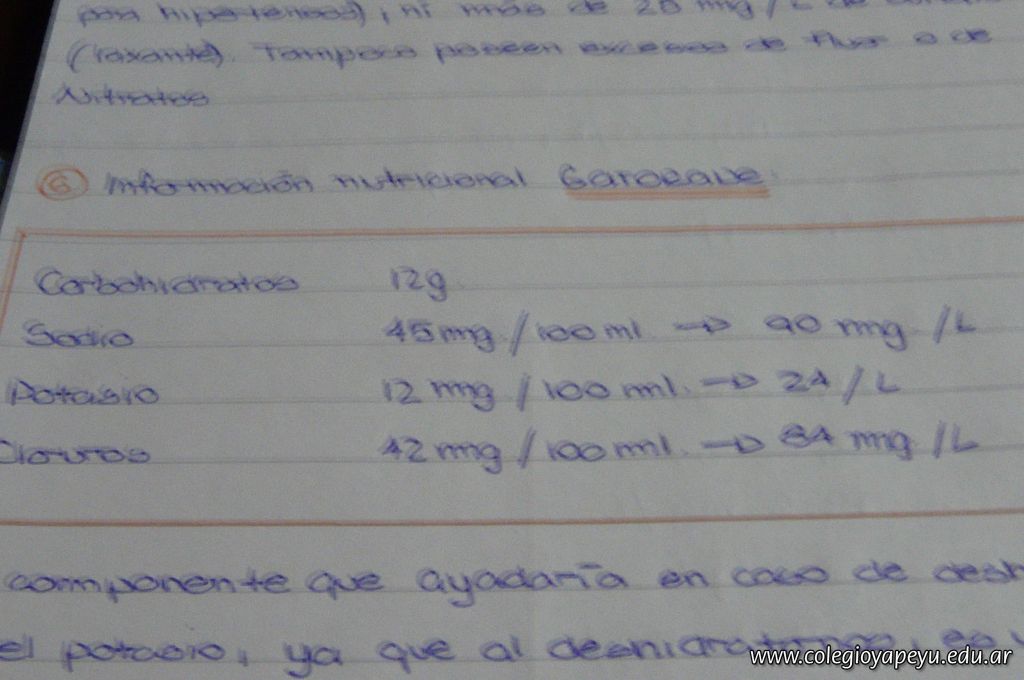 por hipertensos), ni más de 20 mg / L de
(laxante). Tampoco poseen excesos de fluor o de
Nitratos
6 Información nutricional Gatorade:
Carbohidratos 12g
Sodio 45 mg / 100 ml → 90 mg / L
Potasio 12 mg / 100 ml. → 24 / L
Cloruros 42 mg / 100 ml. → 84 mg / L
componente que ayudaría en caso de desh
el potasio, ya que al deshidratarnos, es
www.colegioyapeyu.edu.ar